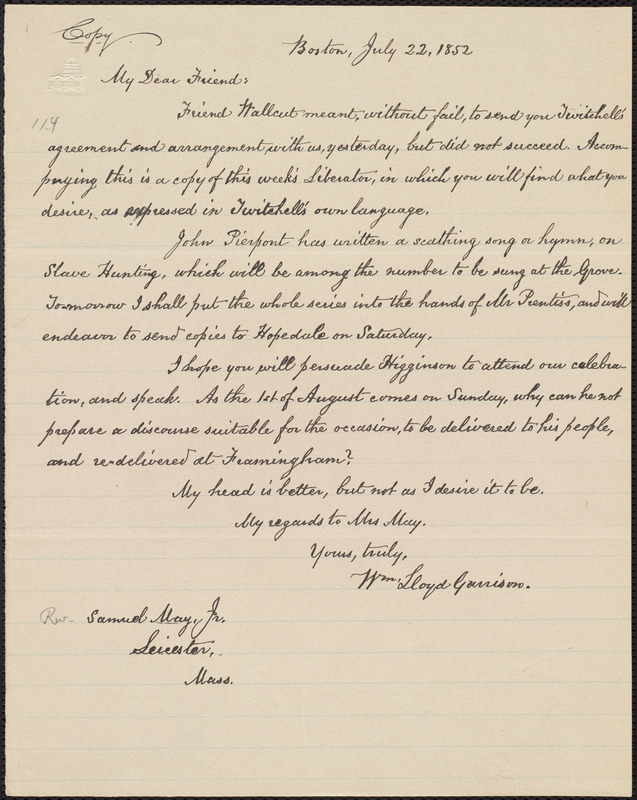 Copy
Boston, July 22, 1852
My Dear Friend:
114
Friend Wallcut meant, without fail, to send you Twitchell's
agreement and arrangement with us, yesterday, but did not succeed. Accom-
panying this is a copy of this week's Liberator, in which you will find what you
desire, as expressed in Twitchell's own language.
John Pierpont has written a scathing song or hymn, on
Slave Hunting, which will be among the number to be sung at the Grove.
To-morrow I shall put the whole series into the hands of Mr Prentiss, and will
endeavor to send copies to Hopedale on Saturday.
I hope you will persuade Higginson to attend our celebra-
tion, and speak. As the 1st of August comes on Sunday, why can he not
prepare a discourse suitable for the occasion, to be delivered to his people,
and re-delivered at Framingham?
My head is better, but not as I desire it to be.
My regards to Mrs May.
Yours, truly,
Wm. Lloyd Garrison.
Rev. Samuel May, Jr.
Leicester,
Mass.